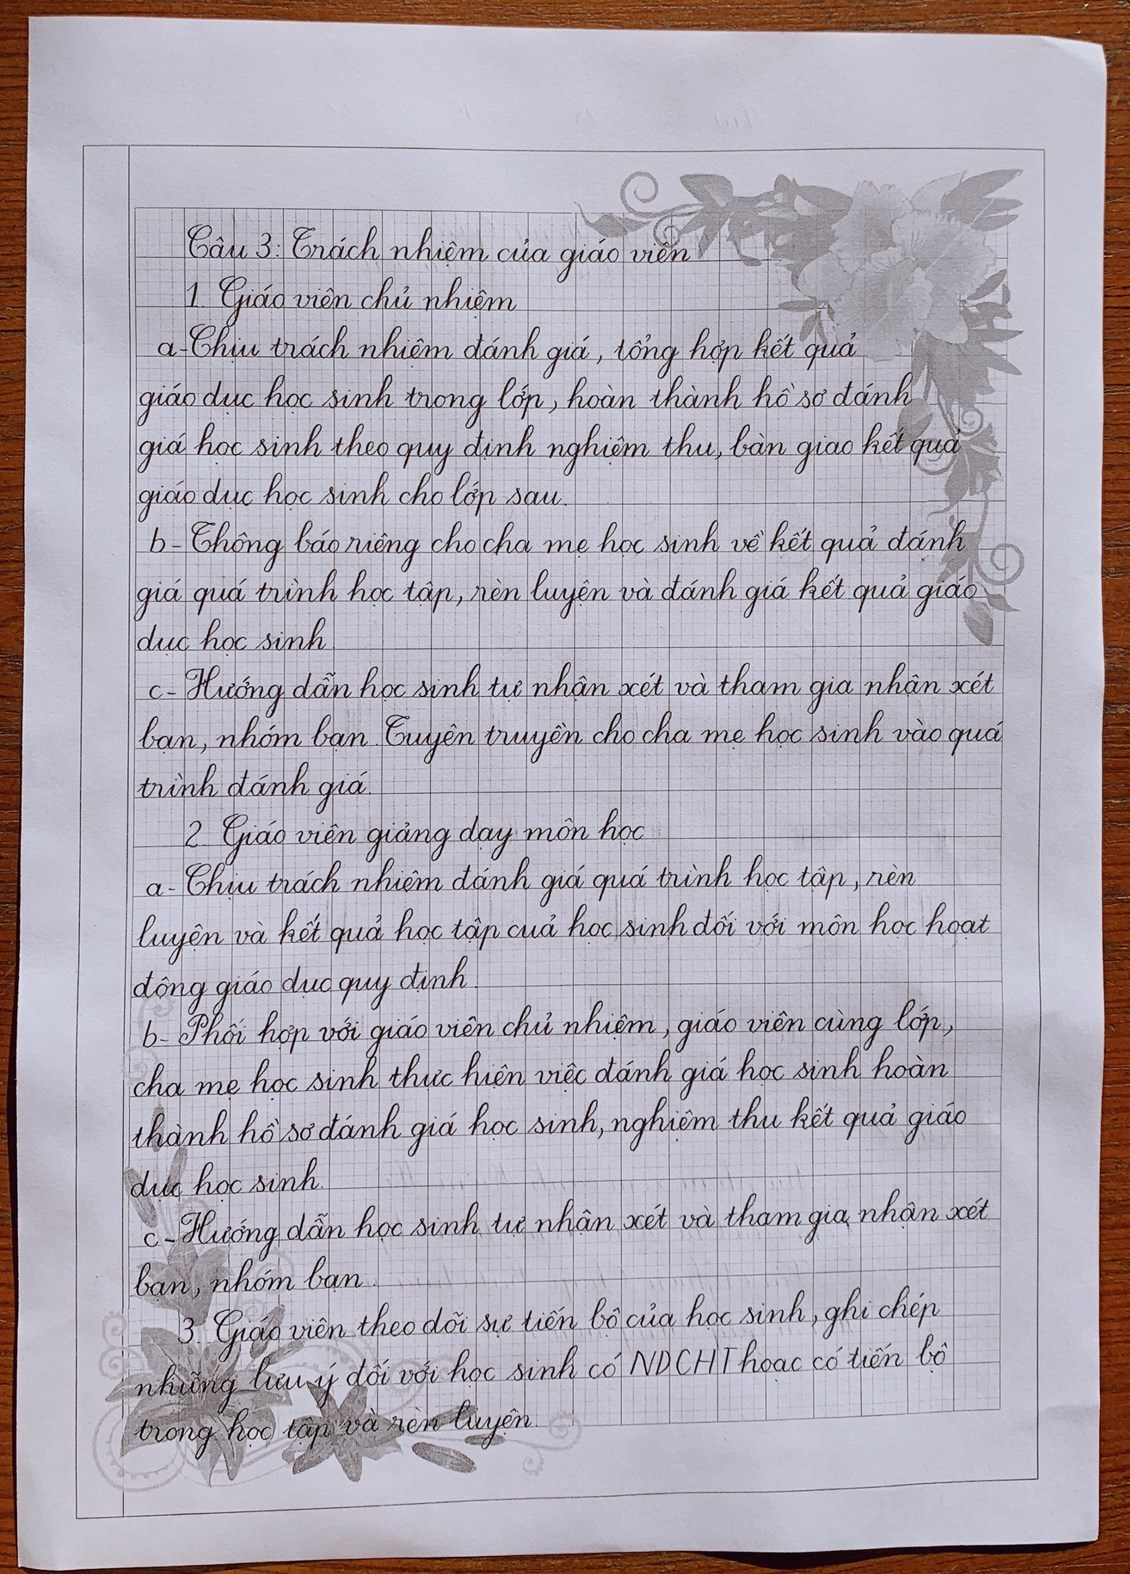 Câu 3: Trách nhiệm của giáo viên
1. Giáo viên chủ nhiệm
a-Chịu trách nhiệm đánh giá, tổng hợp kết quả
giáo dục học sinh trong lớp, hoàn thành hồ sơ đánh
giá học sinh theo quy định nghiệm thu, bàn giao kết quả
giáo dục học sinh cho lớp sau.
b-Thông báo riêng cho cha mẹ học sinh về kết quả đánh
giá quá trình học tập, rèn luyện và đánh giá kết quả giáo
dục học sinh.
c-Hướng dẫn học sinh tự nhận xét và tham gia nhận xét
bạn, nhóm bạn. Tuyên truyền cho cha mẹ học sinh vào quá
trình đánh giá.
2. Giáo viên giảng dạy môn học
a-Chịu trách nhiệm đánh giá quá trình học tập, rèn
luyện và kết quả học tập cuả học sinh đối với môn học hoạt
động giáo dục quy định.
b-Phối hợp với giáo viên chủ nhiệm, giáo viên cùng lớp,
cha mẹ học sinh thực hiện việc đánh giá học sinh hoàn
thành hồ sơ đánh giá học sinh, nghiệm thu kết quả giáo
dục học sinh.
c-Hướng dẫn học sinh tự nhận xét và tham gia nhận xét
bạn, nhóm bạn.
3. Giáo viên theo dõi sự tiến bộ của học sinh, ghi chép
những lưu ý đối với học sinh có NDCHT hoạc có tiến bộ
trong học tập và rèn luyện.